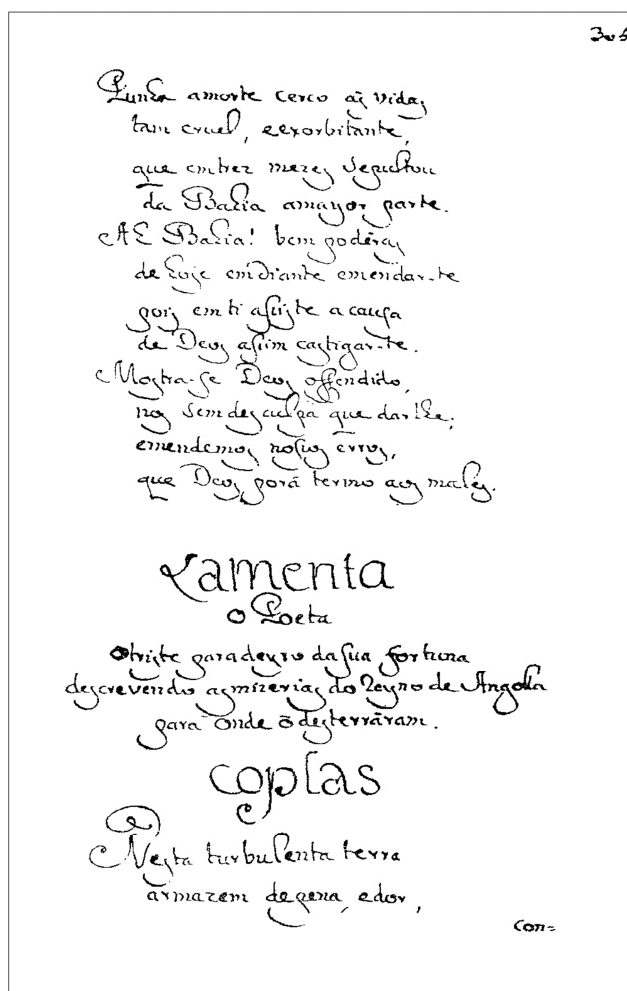 305
Punha amorte cerco ás vidas
tam cruel, eexorbitante,
que emtrez mezes sepultou
da Bahia amayor parte.
Ah Bahia! bem podéras
de hoje emdiante emendar-te
pois em ti assiste a causa
de Deos assim castigar-te.
Mostra-se Deos offendido,
nos sem desculpa que dar lhe;
emendemos nossos érros,
que Deos porá termo aos males.
Lamenta
o Poeta
otriste paradeyro dasua fortuna
descrevendo asmizerias do Reyno de Angolla
para onde o desterráram.
coplas
Nesta turbulenta terra
armazem depena, edor,
con=